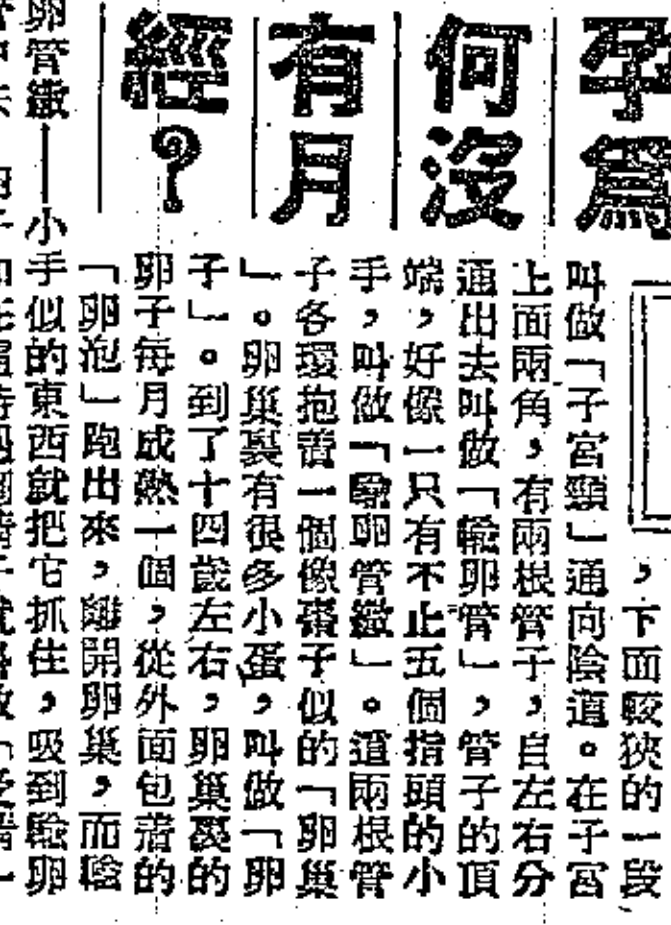 孕爲
何沒
有月
經?
,下面較狹的一段
叫做「子宮頸」通向陰道。在子宮
上面兩角,有兩根管子,自左右分
通出去叫做「輸卵管」,管子的頂
端,好像一只有不止五個指頭的小
手,叫做「輸卵管繖」。這兩根管
子各環抱着一個像棗子似的「卵巢
」。卵巢裏有很多小蛋,叫做「卵
子」。到了十四歲左右,卵巢裏的
卵子每月成熟一個,從外面包着的
「卵泡」跑出來,離開卵巢,而輸
卵管繖——小手似的東西就把它抓住,吸到輸卵